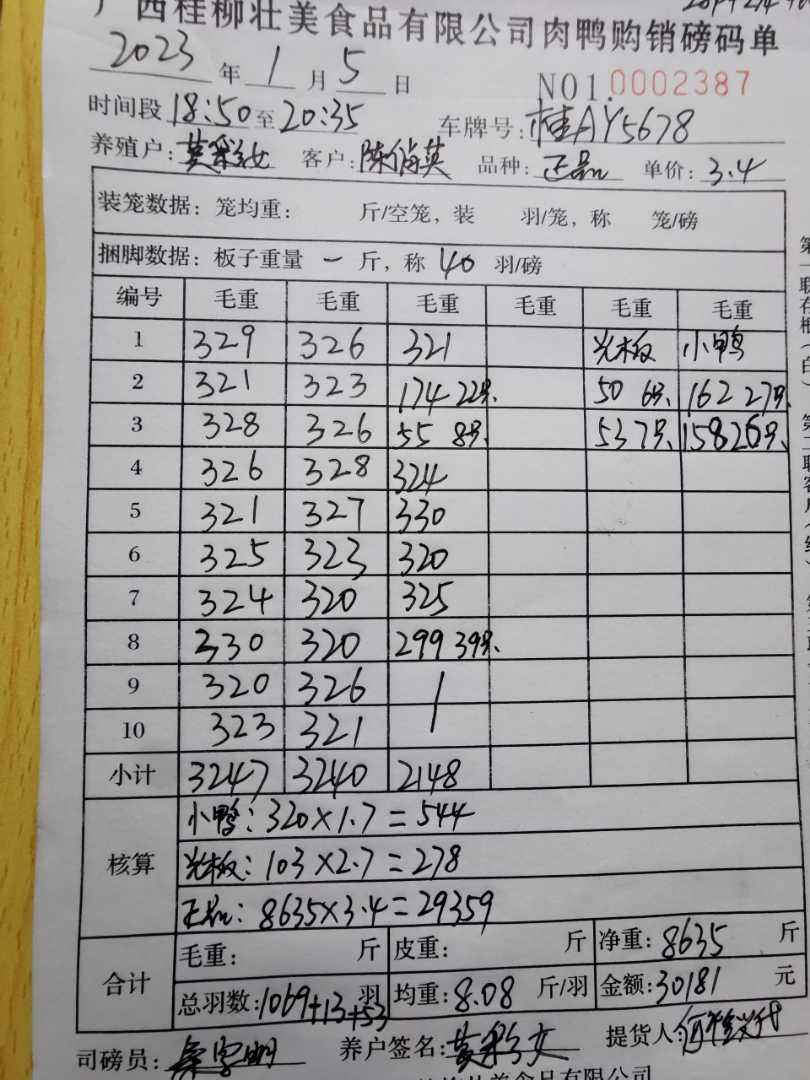 广西桂柳壮美食品有限公司肉鸭购销磅码单
2023 年 1 月 5 日 NO1.0002387
时间段 18:50 至 20:35 车牌号: 桂AY5678
养殖户: 莫彩文 客户: 陈尚英 品种: 正品 单价: 3.4
装笼数据: 笼均重: 斤/空笼, 装 羽/笼, 称 笼/磅
捆脚数据: 板子重量 一 斤, 称 40 羽/磅
编号 毛重 毛重 毛重 毛重 毛重 毛重
1 329 326 321 光板 小鸭
2 321 323 174 22只. 50 6只. 162 27只.
3 328 326 55 8只. 53 7只. 158 26只.
4 326 328 324
5 321 327 330
6 325 323 320
7 324 320 325
8 330 320 299 39只.
9 320 326
10 323 321
小计 3247 3240 2148
核算 小鸭: 320×1.7=544
光板: 103×2.7=278
正品: 8635×3.4=29359
合计 毛重: 斤 皮重: 斤 净重: 8635 斤
总羽数: 1069+13+53 羽 均重: 8.08 斤/羽 金额: 30181 元
司磅员: 养户签名: 莫彩文 提货人: